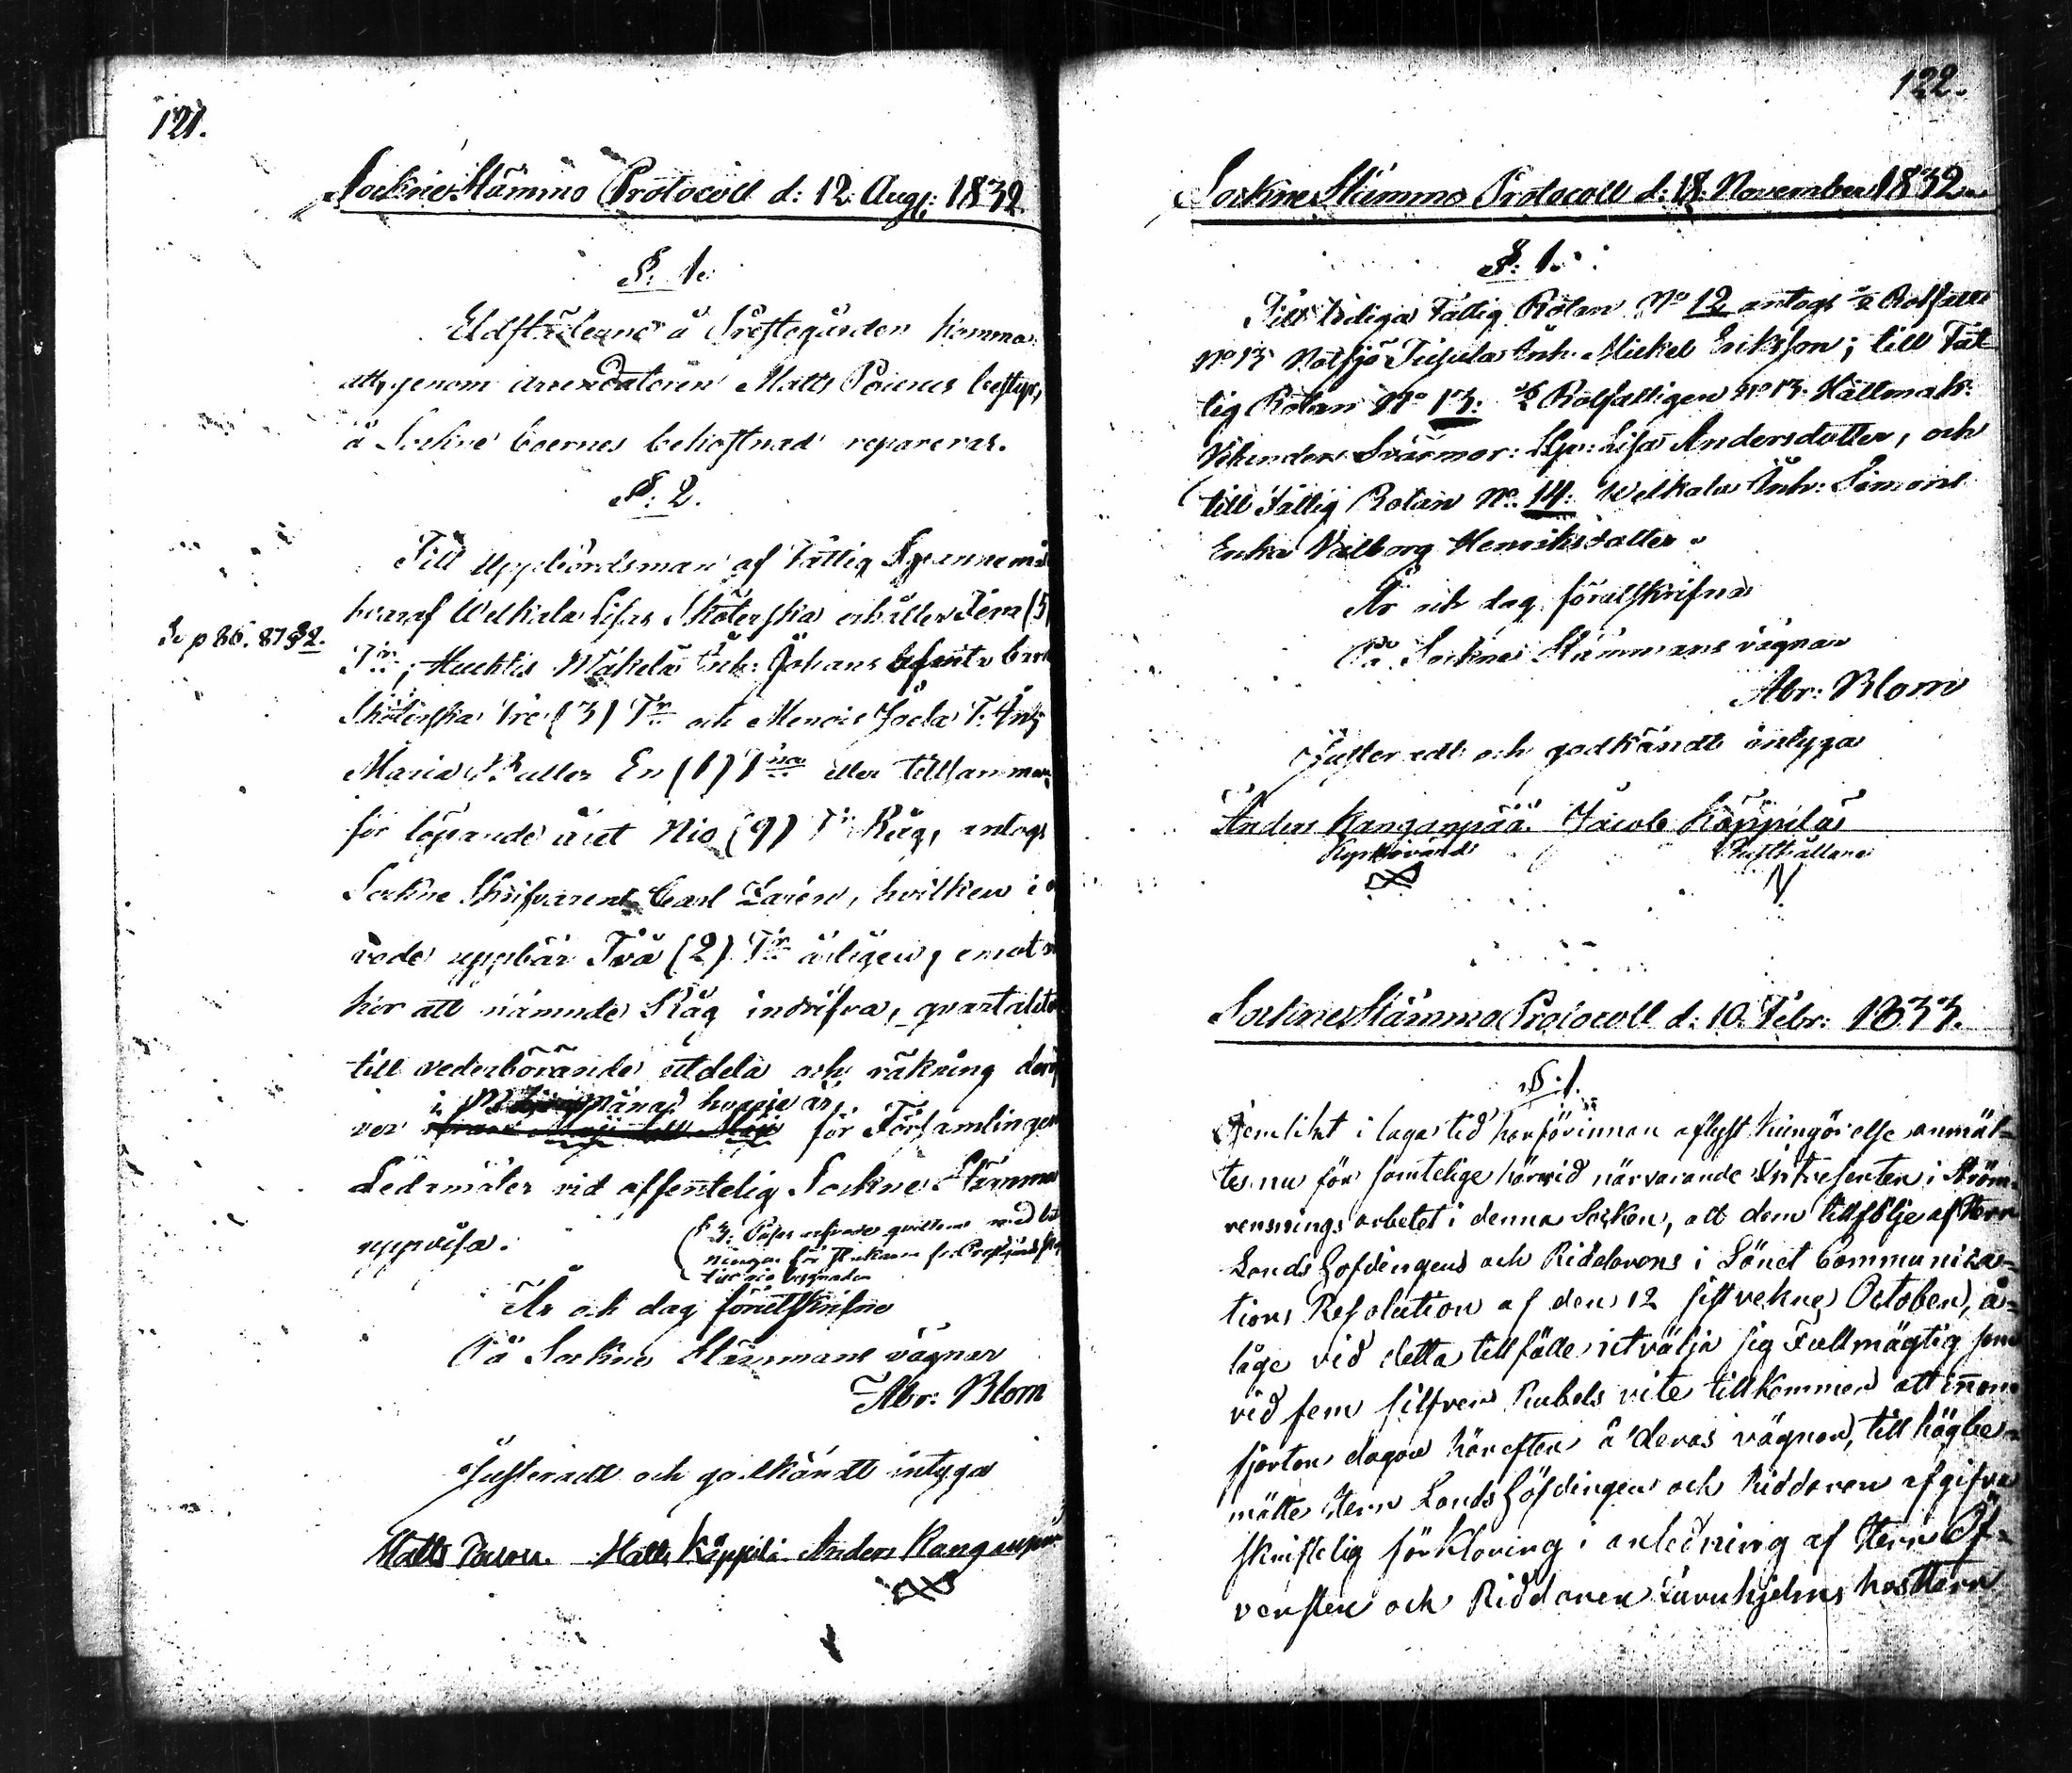 121.
Sockne Stämmo Protocoll d: 12 Aug: 1832
§. 1.
Eldstäderne å Prestegården komma
att genom arrendatoren Matts Paunus bestyr,
å Sockne boernes bekostnad repareras.
§. 2.
Till Uppbördsman af Fattig Spannemål
hvaraf Welkala Lisas Sköterska erhåller Fem (5)
Se p 86. 87 § 2.
Tr; Huchtis Mäkelä Enh: Johans
Sköterska Tre (3) Tr och Menois Jocla T.
Maria En (1) Tna eller tillsamman
för löpande året Nio (9) Tr Råg, antogs
Sockne Skrifvaren Carl Zarén, hvilken i
vode uppbär Två (2) Tr årligen, emot
hör att nämnde Råg indrifva, qvartaliter
till vederbörande utdela och räkning der
i Maji månad hvarje år,
ver för Församlingens
Ledamöter vid offentelig Sockne Stämma
uppvisa.
§ 3: qvitterne med
ningar för
byggnaden
År och dag förutskrifne
På Sockne Stämmans vägnar
Abr: Blom
Justeradt och godkändt intyga
Matts Paunu. Matts Käppilä Anders Kanganpää
122.
Sockne Stämmo Protocoll d: 18 November 1832
§. 1.
Till lediga Fattig Rotan No 12 antogs ½ Rotfalle
No 13 Notsjö Tuhula Enh. Mickel Eriksson; till Fat
tig Rotan No 13: ½ Rotfattigen No 13. Hällmaks:
Svärmor: Lisa Andersdotter, och
till Fattig Rotan No. 14. Welkala Enh: Simons
Enka Valborg Henriksdotter.
År och dag förutskrifna
På Sockne Stämmans vägnar
Abr: Blom
Justeradt och godkändt intyga
Anders Kanganpää. Jacob Käppilä
Kyrkovärd Rusthållare
Sockne Stämmo Protocoll d: 10. Febr: 1833.
§. 1.
Jemlikt i laga tid härförinnan aflyst kungörelse anmäl-
tes nu för samtelige härvid närvarande Intressenter i Ström-
rensnings arbetet i denna Socken, att dem tillfölje af Herr
Lands Höfdingens och Riddarens i Länet Communica-
tions Resolution af den 12 sistvekne October, å-
låge vid detta tillfälle utvälja sig Fullmägtig som
vid fem silfver Rubels vite tillkommer att innom
fjorton dagar härefter å deras vägnar, till högbe-
mälte Herr Lands Höfdingen och Riddaren afgifva
skriftelig förklaring i anledning af Herr Öf-
versten och Riddaren Järnhjelms hos Herr